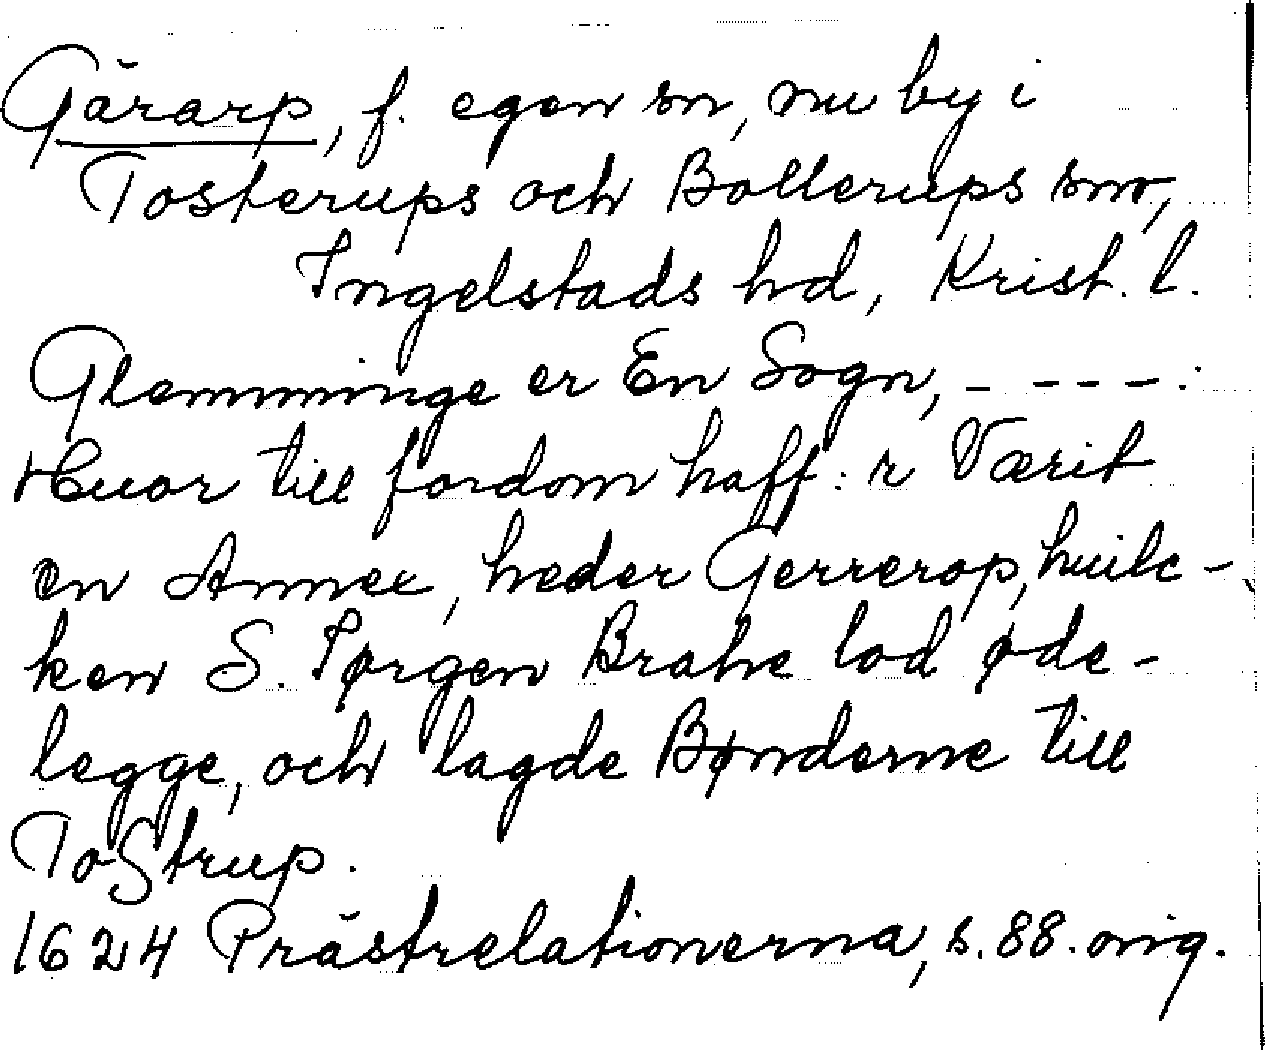 Gärarp, f. egen sn, nu by i
Tosterups och Bollerups snr,
Ingelstads hd, Krist. l.
Glemminge er En Sogn, - - - - :
Huor till fordom haff: r Værit
en Annex, heder Gerrerop, huilc-
ken S. Jørgen Brahe lod øde-
legge, och lagde Bønderne till
ToStrup.
1624 Prästrelationerna, s. 88. orig.